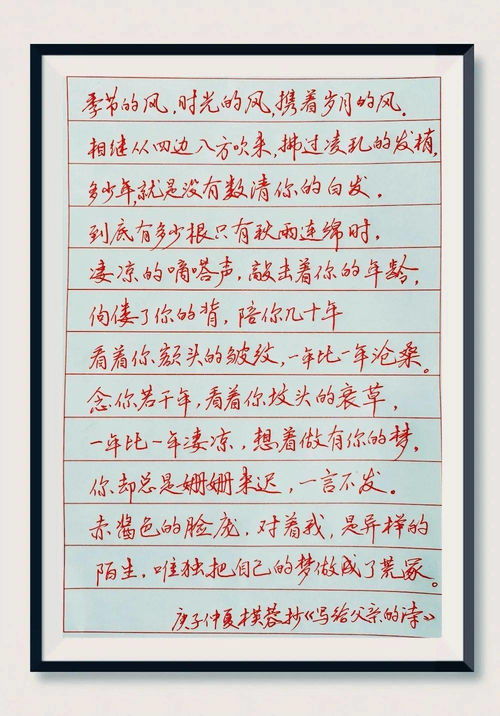 季节的风,时光的风,携着岁月的风。
相继从四边八方吹来,拂过凌乱的发梢,
多少年,就是没有数清你的白发。
到底有多少根只有秋雨连绵时,
凄凉的嘀嗒声,敲击着你的年龄,
佝偻了你的背,陪你几十年
看着你额头的皱纹,一年比一年沧桑。
念你若干年,看着你坟头的衰草,
一年比一年凄凉,想着做有你的梦,
你却总是姗姗来迟,一言不发。
赤酱色的脸庞,对着我,是异样的
陌生,唯独把自己的梦做成了荒冢。
庚子仲夏模蓉抄《写给父亲的诗》